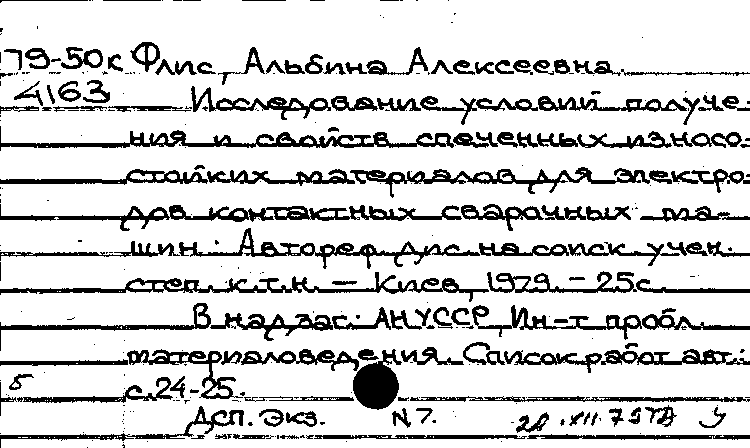 79-50к Флис, Альбина Алексеевна.
4163 Исследование условий получе-
ния и свойств спеченных износо-
стойких материалов для электро-
дов контактных сварочных ма-
шин: Автореф. дис. на соиск. учен.
степ. к.т.н. — Киев, 1979. - 25с.
В надзаг.: АН УССР, Ин-т пробл.
материаловедения. Список работ авт.:
5 с.24-25.
ДСП. Экз. N7.